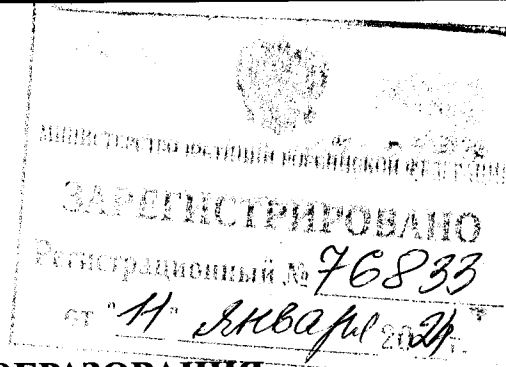 МИНИСТЕРСТВО ЮСТИЦИИ РОССИЙСКОЙ ФЕДЕРАЦИИ
ЗАРЕГИСТРИРОВАНО
Регистрационный № 76833
от "11" января 2024 г.
ОБРАЗОВАНИЯ